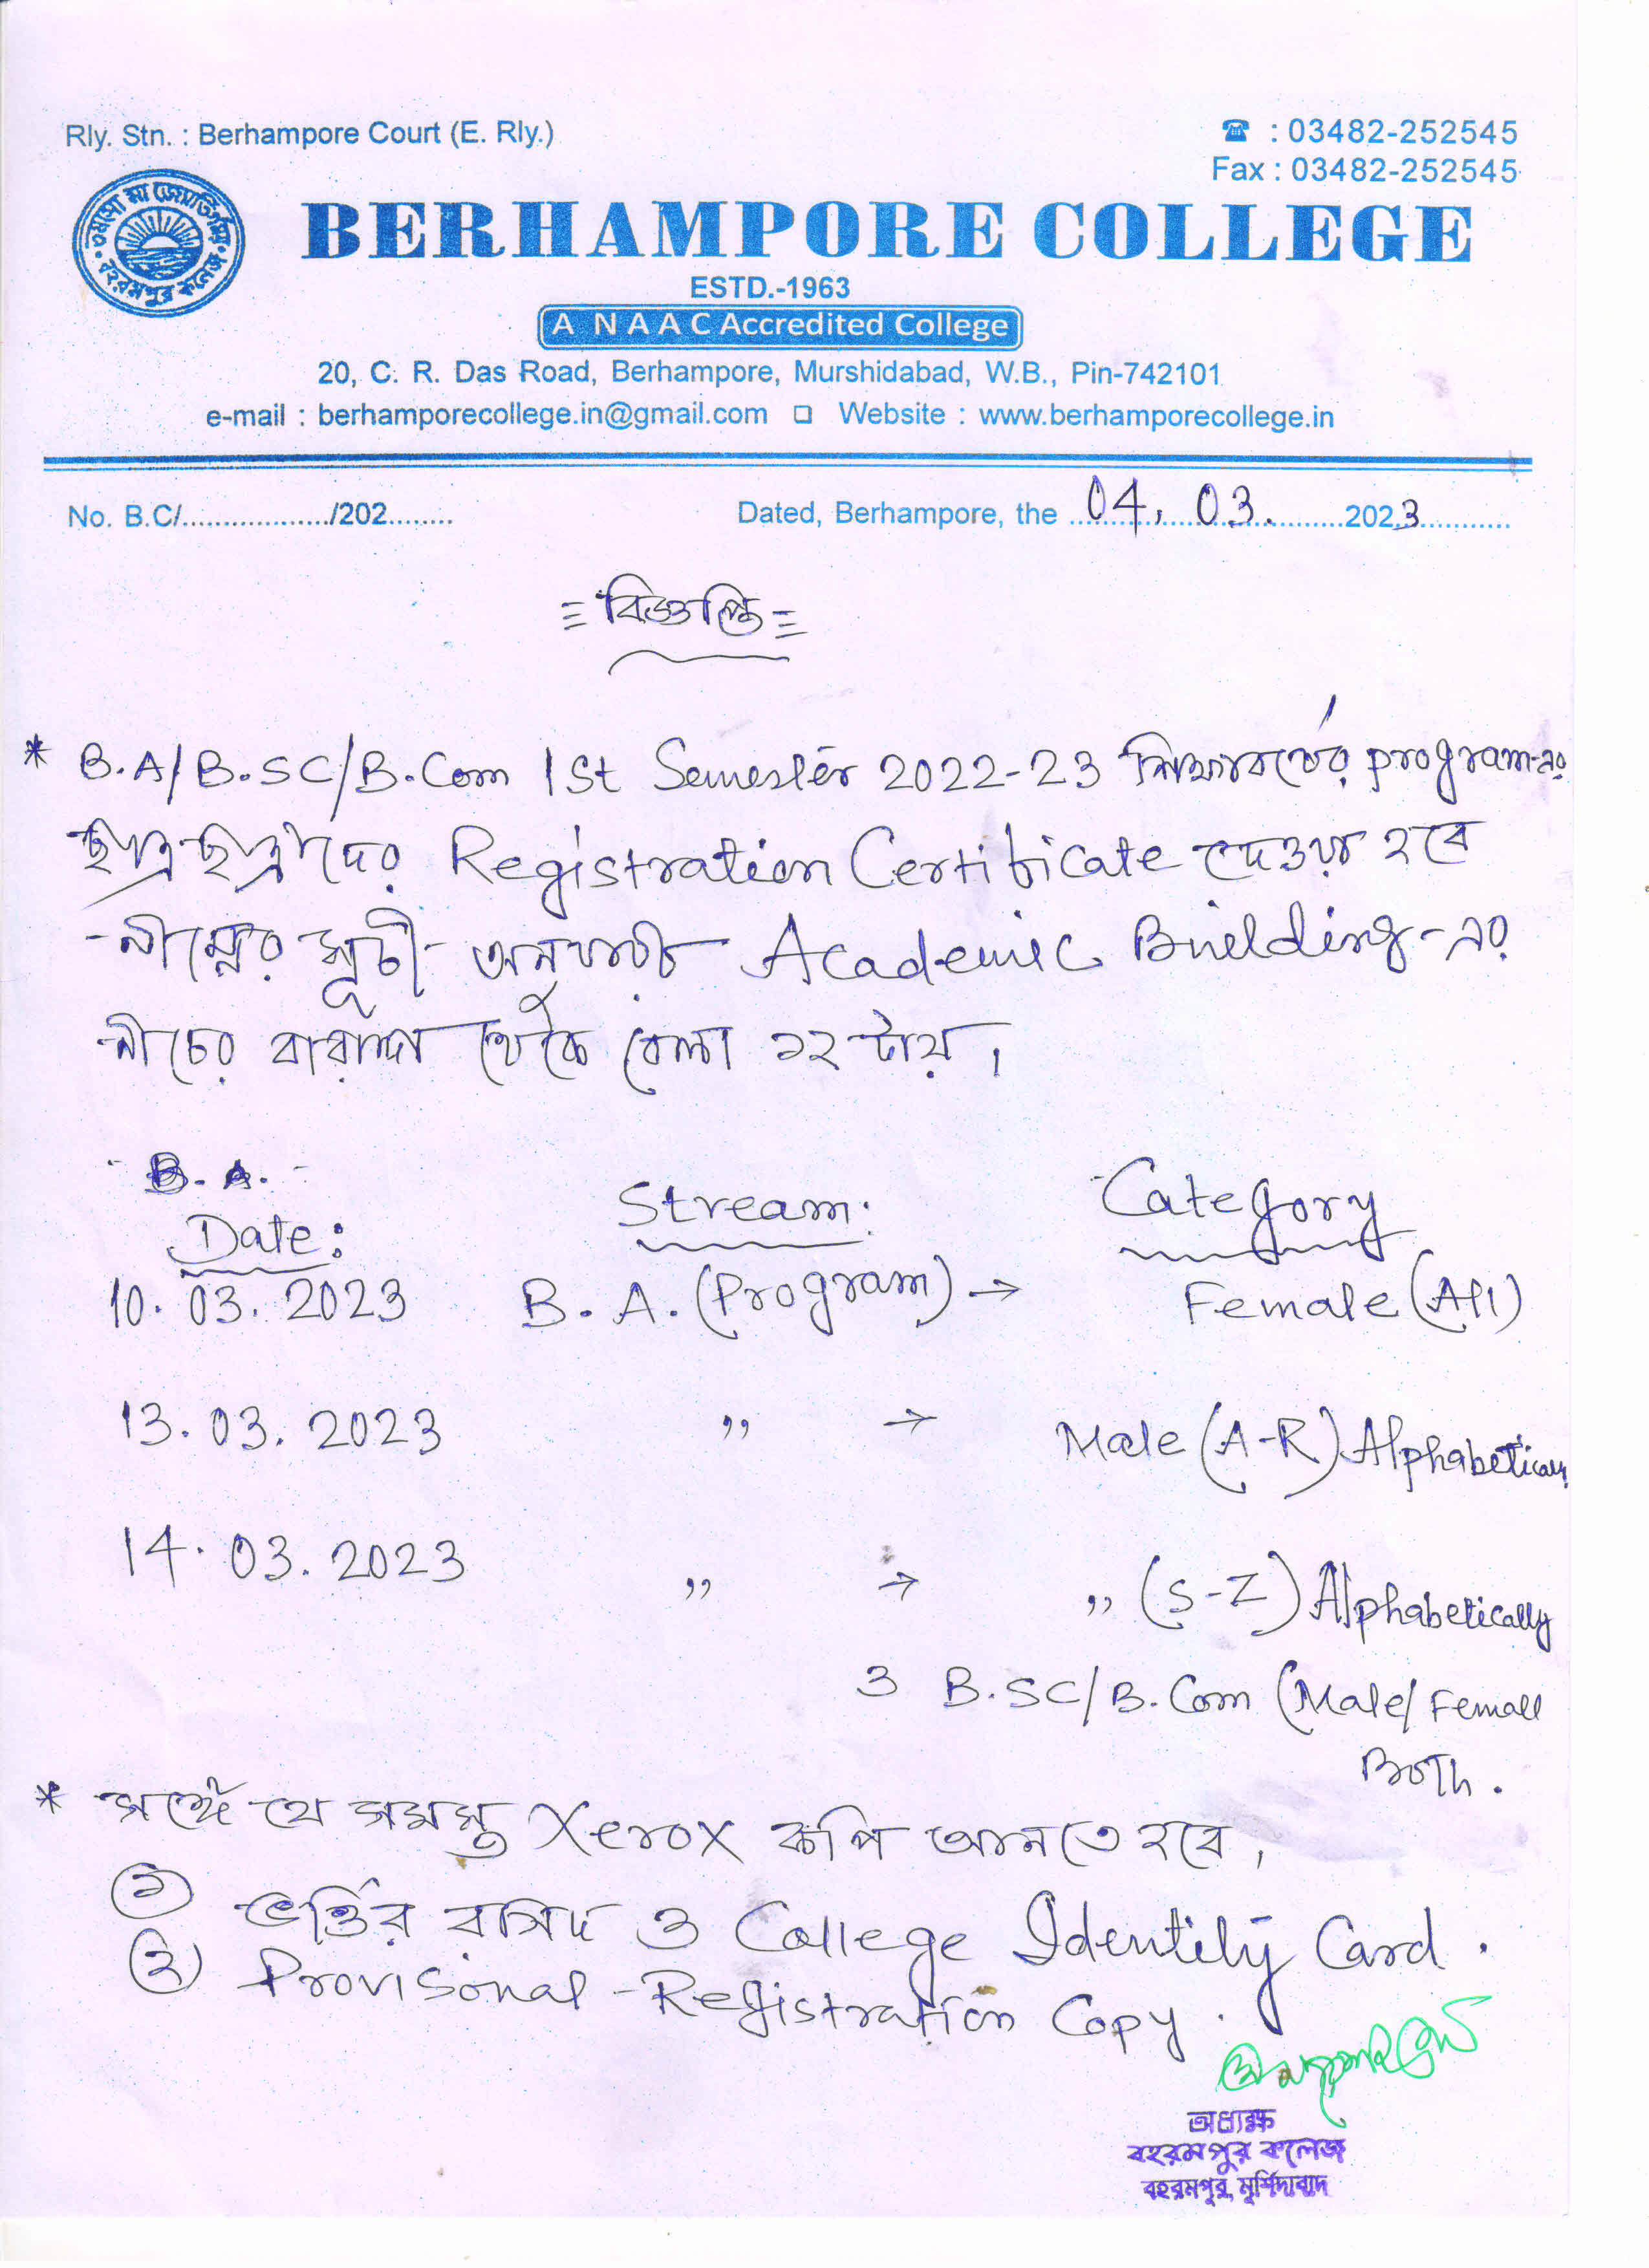 Rly. Stn. : Berhampore Court (E. Rly.)
☎ : 03482-252545
Fax : 03482-252545
তমসো মা জ্যোতির্গময়
বহরমপুর কলেজ
BERHAMPORE COLLEGE
ESTD.-1963
A NAAC Accredited College
20, C. R. Das Road, Berhampore, Murshidabad, W.B., Pin-742101
e-mail : berhamporecollege.in@gmail.com □ Website : www.berhamporecollege.in
No. B.C/................../202........ Dated, Berhampore, the 04. 03. 2023
= বিজ্ঞপ্তি =
* B.A/B.SC/B.Com 1St Semester 2022-23 শিক্ষাবর্ষের program-এর
ছাত্রছাত্রীদের Registration Certificate দেওয়া হবে
নীম্নের সূচী অনুযায়ী Academic Building-এর
নীচের বারান্দা থেকে বেলা ১২ টায়।
B. A.
Date: Stream: Category
10. 03. 2023 B. A. (Program) → Female (All)
13. 03. 2023 ,, → Male (A-R) Alphabetically
14. 03. 2023 ,, → ,, (S-Z) Alphabetically
ও B.SC/B.Com (Male/Female
Both.
* সঙ্গে যে সমস্ত Xerox কপি আনতে হবে,
১ ভর্ত্তির রসিদ ও College Identity Card.
২ Provisonal Registration Copy.
অধ্যক্ষ
বহরমপুর কলেজ
বহরমপুর, মুর্শিদাবাদ